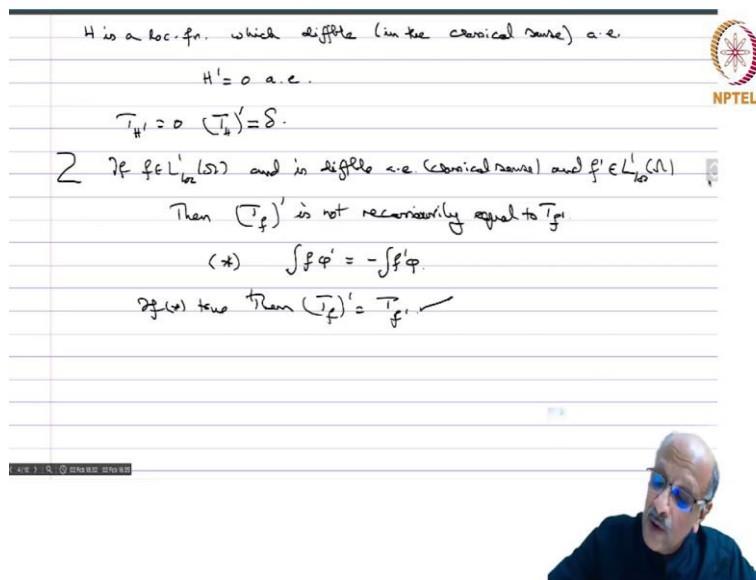 H is a loc. fn. which diffble (in the classical sense) a.e.
H' = 0 a.e.
T_{H'} = 0 (T_H)' = δ.
If f ∈ L¹_{loc}(Ω) and is diffble a.e. (classical sense) and f' ∈ L¹_{loc}(Ω)
Then (T_f)' is not necessarily equal to T_{f'}.
(*) ∫fφ' = -∫f'φ.
If (*) true then (T_f)' = T_{f'} ✓
NPTEL
4/10